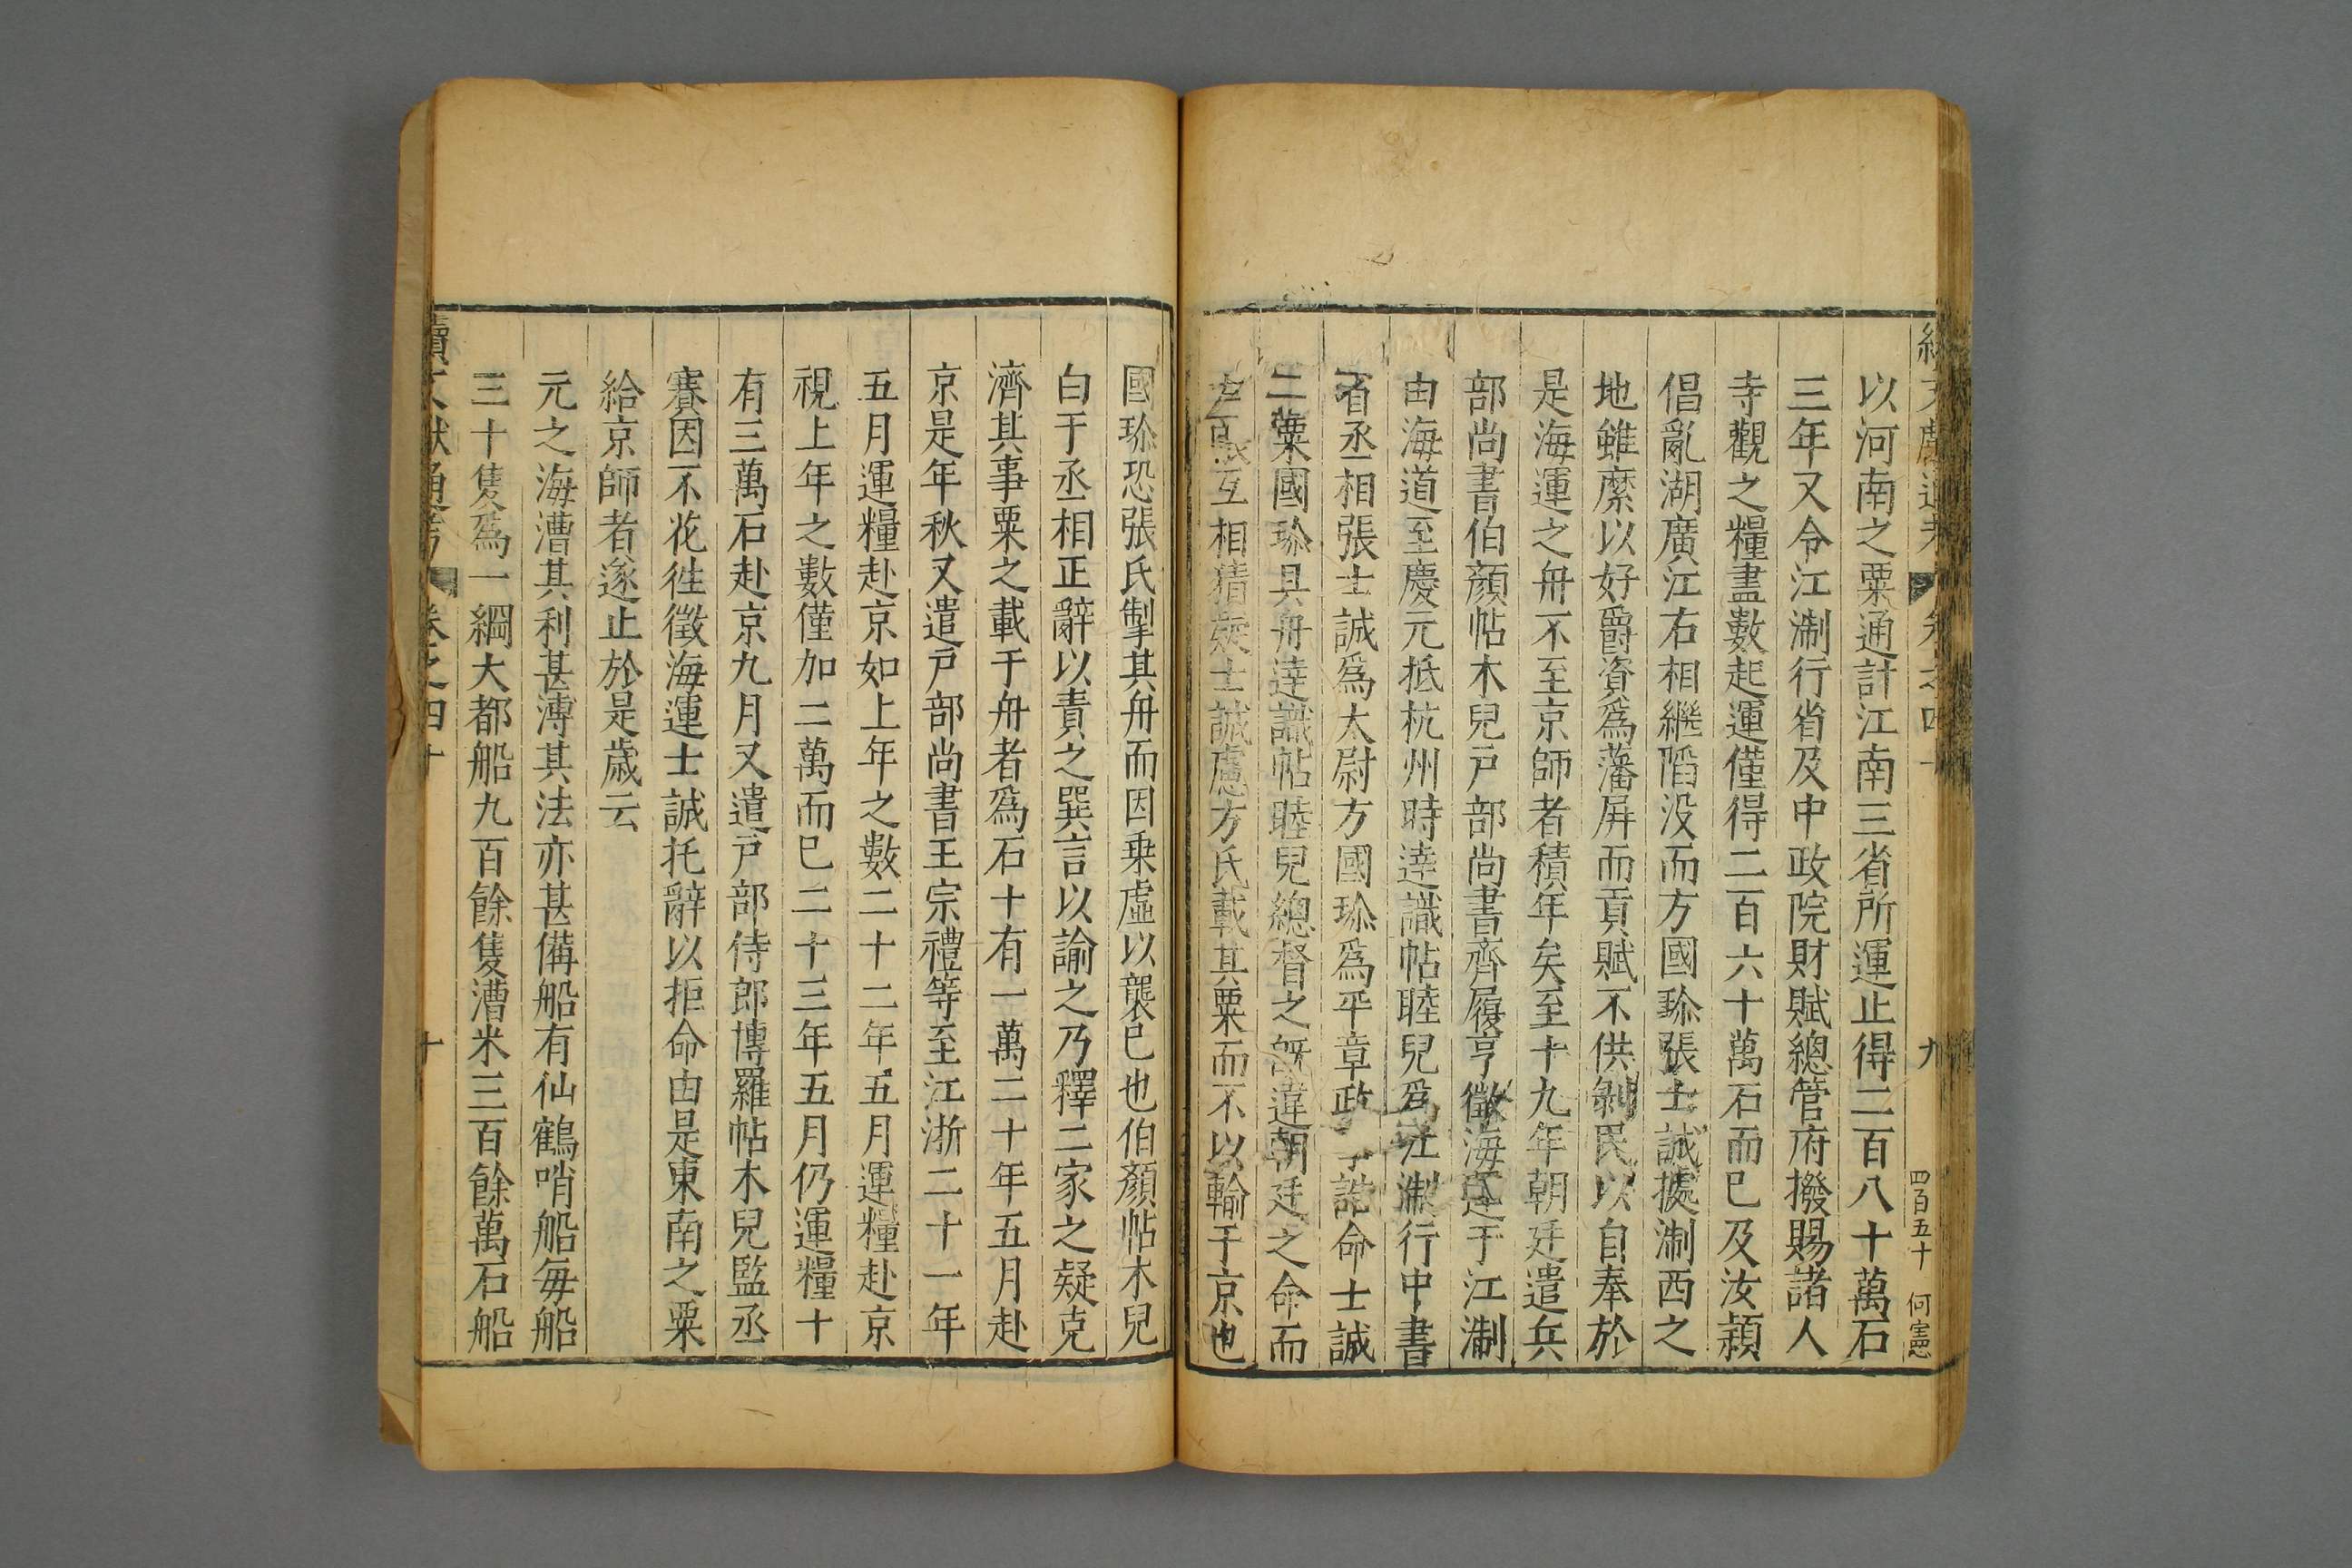 續文獻通考 卷之四十 九 四百五十 何憲
以河南之粟通計江南三省所運止得二百八十萬石
三年又令江淛行省及中政院財賦總管府撥賜諸人
寺觀之糧盡數起運僅得二百六十萬石而已及汝潁
倡亂湖廣江右相繼陷没而方國珎張士誠據淛西之
地雖縻以好爵資爲藩屏而貢賦不供剝民以自奉於
是海運之舟不至京師者積年矣至十九年朝廷遣兵
部尚書伯顔帖木兒戸部尚書齊履亨徵海運于江淛
由海道至慶元抵杭州時逹識帖睦兒爲江淛行中書
省丞相張士誠爲太尉方國珎爲平章政 詔命士誠
粟國珎具舟逹識帖睦兒總督之旣違朝廷之命而
互相猜疑士誠慮方氏載其粟而不以輸于京也
國珎恐張氏掣其舟而因乗虛以襲已也伯顔帖木兒
白于丞相正辭以責之巽言以諭之乃釋二家之疑克
濟其事粟之載于舟者爲石十有一萬二十年五月赴
京是年秋又遣戸部尚書王宗禮等至江浙二十一年
五月運糧赴京如上年之數二十二年五月運糧赴京
視上年之數僅加二萬而已二十三年五月仍運糧十
有三萬石赴京九月又遣戸部侍郎博羅帖木兒監丞
賽因不花徃徵海運士誠托辭以拒命由是東南之粟
給京師者遂止於是歳云
元之海漕其利甚溥其法亦甚備船有仙鶴哨船每船
三十隻爲一綱大都船九百餘隻漕米三百餘萬石船
續文獻通考 卷之四十 十